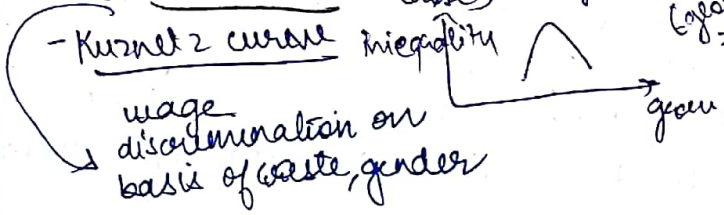 - Kuznetz curve inequality
wage
discrimination on
basis of caste, gender